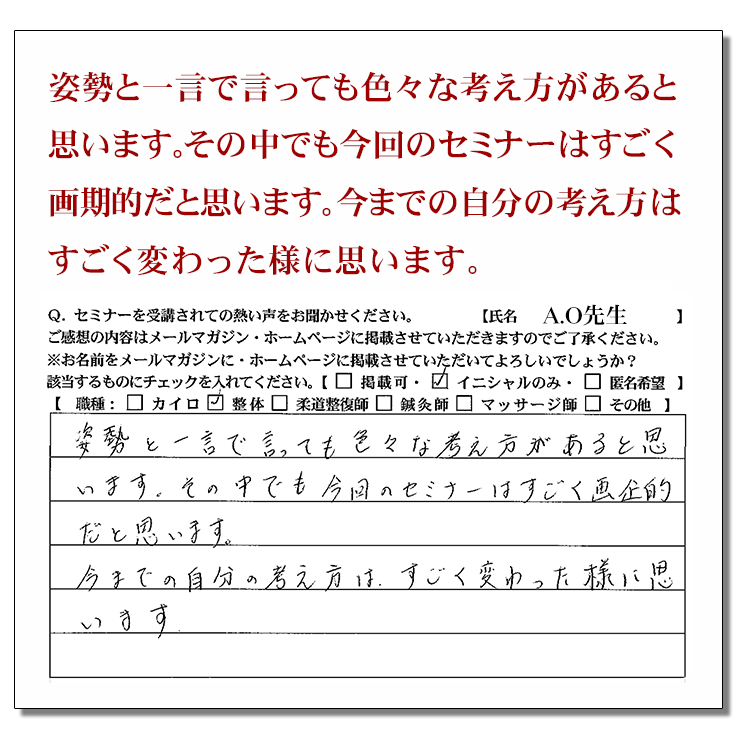 姿勢と一言で言っても色々な考え方があると
思います。その中でも今回のセミナーはすごく
画期的だと思います。今までの自分の考え方は
すごく変わった様に思います。
Q. セミナーを受講されての熱い声をお聞かせください。 【氏名 A.O先生 】
ご感想の内容はメールマガジン・ホームページに掲載させていただきますのでご了承ください。
※お名前をメールマガジンに・ホームページに掲載させていただいてよろしいでしょうか？
該当するものにチェックを入れてください。【 □ 掲載可・ ☑ イニシャルのみ・ □ 匿名希望 】
【 職種： □ カイロ ☑ 整体 □ 柔道整復師 □ 鍼灸師 □ マッサージ師 □ その他 】
姿勢と一言で言っても色々な考え方があると思
います。その中でも今回のセミナーはすごく画企的
だと思います。
今までの自分の考え方は、すごく変わった様に思
います